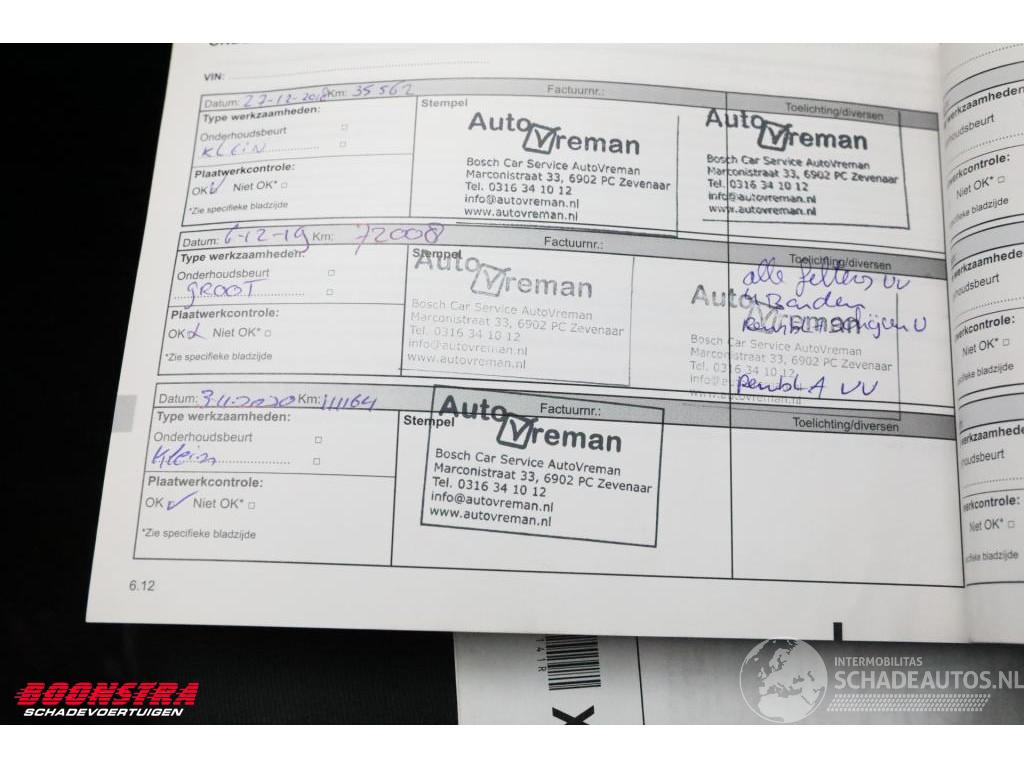 VIN:
Datum: 27-12-2018 Km: 35562 Factuurnr.:
Type werkzaamheden:
Onderhoudsbeurt
KLEIN
Plaatwerkcontrole:
OK Niet OK*
*Zie specifieke bladzijde
Stempel
AutoVreman
Bosch Car Service AutoVreman
Marconistraat 33, 6902 PC Zevenaar
Tel. 0316 34 10 12
info@autovreman.nl
www.autovreman.nl
Toelichting/diversen
AutoVreman
Bosch Car Service AutoVreman
Marconistraat 33, 6902 PC Zevenaar
Tel. 0316 34 10 12
info@autovreman.nl
www.autovreman.nl
Datum: 6-12-19 Km: 72008 Factuurnr.:
Type werkzaamheden:
Onderhoudsbeurt
GROOT
Plaatwerkcontrole:
OK Niet OK*
*Zie specifieke bladzijde
Stempel
AutoVreman
Bosch Car Service AutoVreman
Marconistraat 33, 6902 PC Zevenaar
Tel. 0316 34 10 12
info@autovreman.nl
www.autovreman.nl
Toelichting/diversen
alle filters VV
Banden
AutoVreman
Bosch Car Service AutoVreman
Marconistraat 33, 6902 PC Zevenaar
Tel. 0316 34 10 12
VV
Datum: Km: 111164 Factuurnr.:
Type werkzaamheden:
Onderhoudsbeurt
Klein
Plaatwerkcontrole:
OK Niet OK*
*Zie specifieke bladzijde
Stempel
AutoVreman
Bosch Car Service AutoVreman
Marconistraat 33, 6902 PC Zevenaar
Tel. 0316 34 10 12
info@autovreman.nl
www.autovreman.nl
Toelichting/diversen
6.12
werkzaamheden
oudsbeurt
erkcontrole:
Niet OK*
specifieke bladzijde
werkzaamheden
oudsbeurt
erkcontrole:
Niet OK*
specifieke bladzijde
werkzaamhede
oudsbeurt
erkcontrole:
Niet OK*
specifieke bladzijde
141R
X
BOONSTRA
SCHADEVOERTUIGEN
INTERMOBILITAS
SCHADEAUTOS.NL